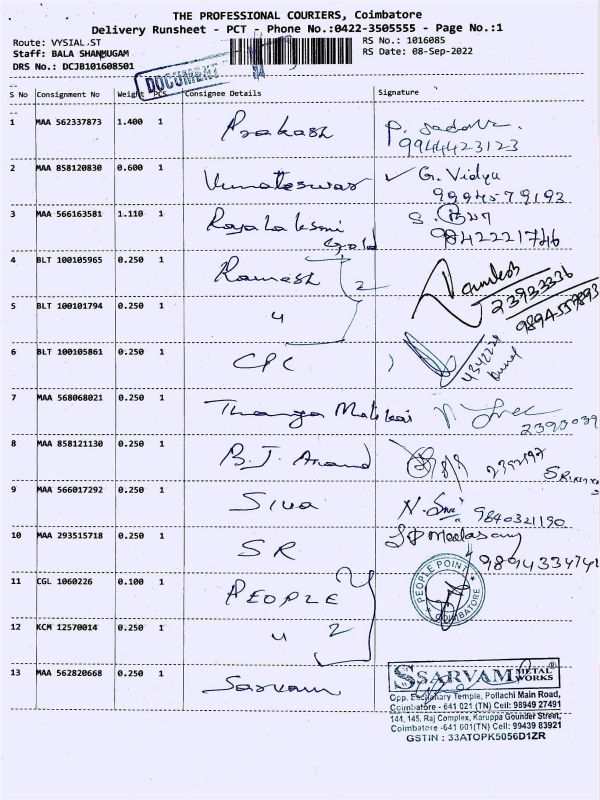 THE PROFESSIONAL COURIERS, Coimbatore
Delivery Runsheet - PCT - Phone No.:0422-3505555 - Page No.:1
Route: VYSIAL.ST RS No.: 1016085
Staff: BALA SHANMUGAM RS Date: 08-Sep-2022
DRS No.: DCJB101608501
DOCUMENT
S No Consignment No Weight PCS Consignee Details Signature
1 MAA 562337873 1.400 1 Prakash
9944423123
2 MAA 858120830 0.600 1 G. Vidya
9994579193
3 MAA 566163581 1.110 1 Rajalaksmi
Gold 9842221746
4 BLT 100105965 0.250 1 Ramesh 2
23933336
5 BLT 100101794 0.250 1 "
9894557893
6 BLT 100105861 0.250 1 CPC
7 MAA 568068021 0.250 1 Thanga Malikai
8 MAA 858121130 0.250 1 B.J. Anand
9 MAA 566017292 0.250 1 Siva 9840321190
10 MAA 293515718 0.250 1 SR
11 CGL 1060226 0.100 1 PEOPLE
PEOPLE POINT
COIMBATORE
12 KCM 12570014 0.250 1 " 2
13 MAA 562820668 0.250 1 Sarvam
SARVAM METAL WORKS
Temple, Pollachi Main Road,
Coimbatore - 641 021 (TN) Cell: 98949 27491
144, 145, Raj Complex, Karuppa Gounder Street,
Coimbatore -641 001(TN) Cell: 99439 83921
GSTIN : 33ATOPK5056D1ZR